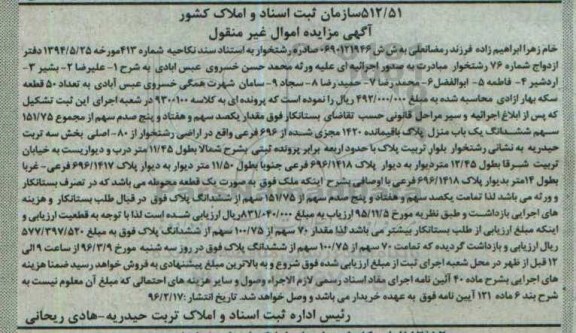 ۵۱۲/۵۱سازمان ثبت اسناد و املاک کشور
آگهی مزایده اموال غیر منقول
خام زهرا ابراهیم زاده فرزند رمضانعلی به ش ش ۰۶۹۰۱۲۱۹۴۶ صادره رشتخوار به استناد سند نکاحیه شماره ۴۱۳مورخه ۱۳۹۴/۵/۲۵ دفتر
ازدواج شماره ۷۶ رشتخوار مبادرت به صدور اجرائیه ای علیه ورثه محمد حسن خسروی عبس ابادی به شرح ۱- علیرضا ۲- بشیر ۳-
اردشیر ۴- فاطمه ۵- ابوالفضل ۶- محمدرضا ۷- حمیدرضا ۸- سجاد ۹- سامان شهرت همگی خسروی عبس آبادی به تعداد ۵۰ قطعه
سکه بهار ازادی محاسبه شده به مبلغ ۴۹۲/۰۰۰/۰۰۰ ریال را نموده است که پرونده ای به کلاسه ۹۳۰۰۱۰۰ در شعبه اجرای این ثبت تشکیل
که پس از ابلاغ اجرائیه و سیر مراحل قانونی حسب تقاضای بستانکار فوق مقدار یکصد سهم و هفتاد و پنج صدم سهم از مجموع ۱۵۱/۷۵
سهم ششدانگ یک باب منزل پلاک باقیمانده ۱۴۲۰ مجزی شده از ۶۹۶ فرعی واقع در اراضی رشتخوار از ۸۰- اصلی بخش سه تربت
حیدریه به نشانی رشتخوار بلوار تربیت پلاک با حدود اربعه برابر پرونده ثبتی بشرح شمالا بطول ۱۱/۴۵ متر درب و دیواریست به خیابان
تربیت شرقا بطول ۱۲/۴۵ متردیوار به دیوار پلاک ۶۹۶/۱۴۱۸ فرعی جنوبا بطول ۱۱/۵۰ متر دیوار به دیوار پلاک ۶۹۶/۱۴۱۷ فرعی- غربا
بطول ۱۴متر بدیوار پلاک ۶۹۶/۱۴۱۸ فرعی با اوصافی بشرح اینکه ملک فوق به صورت یک قطعه محوطه می باشد که در تصرف بستانکار
و ورثه می باشد لذا تمامت یکصد سهم و هفتاد و پنج صدم سهم از ۱۵۱/۷۵سهم از ششدانگ پلاک فوق در قبال طلب بستانکار و هزینه
های اجرایی بازداشت و طبق نظریه مورخ ۹۵/۱۱/۵ ارزیاب به مبلغ ۸۳۱/۰۴۰/۰۰۰ریال ارزیابی شده است لذا با توجه به قطعیت ارزیابی و
اینکه مبلغ ارزیابی از طلب بستانکار بیشتر می باشد لذا مقدار ۷۰ سهم از ۱۰۰/۷۵ سهم از ششدانگ پلاک فوق به مبلغ ۵۷۷/۳۹۷/۵۲۰
ریال ارزیابی و بازداشت گردیده که تمامت ۷۰ سهم از ۱۰۰/۷۵ سهم از ششدانگ پلاک فوق در روز سه شنبه مورخ ۹۶/۳/۹ از ساعت ۹ الی
۱۲ قبل از ظهر در محل شعبه اجرای ثبت از مبلغ ارزیابی شده فوق شروع و به بالاترین مبلغ پیشنهادی به فروش خواهد رسید ضمنا هزینه
های اجرایی بشرح ماده ۴۰ آئین نامه اجرای مفاد اسناد رسمی لازم الاجراء وصول و سایر هزینه های احتمالی که مبلغ آن معلوم نیست به
شرح بند ۶ ماده ۱۲۱ آیین نامه فوق به عهده خریدار می باشد و وصل خواهد شد. تاریخ انتشار :۹۶/۲/۱۷
رئیس اداره ثبت اسناد و املاک تربت حیدریه-هادی ریحانی